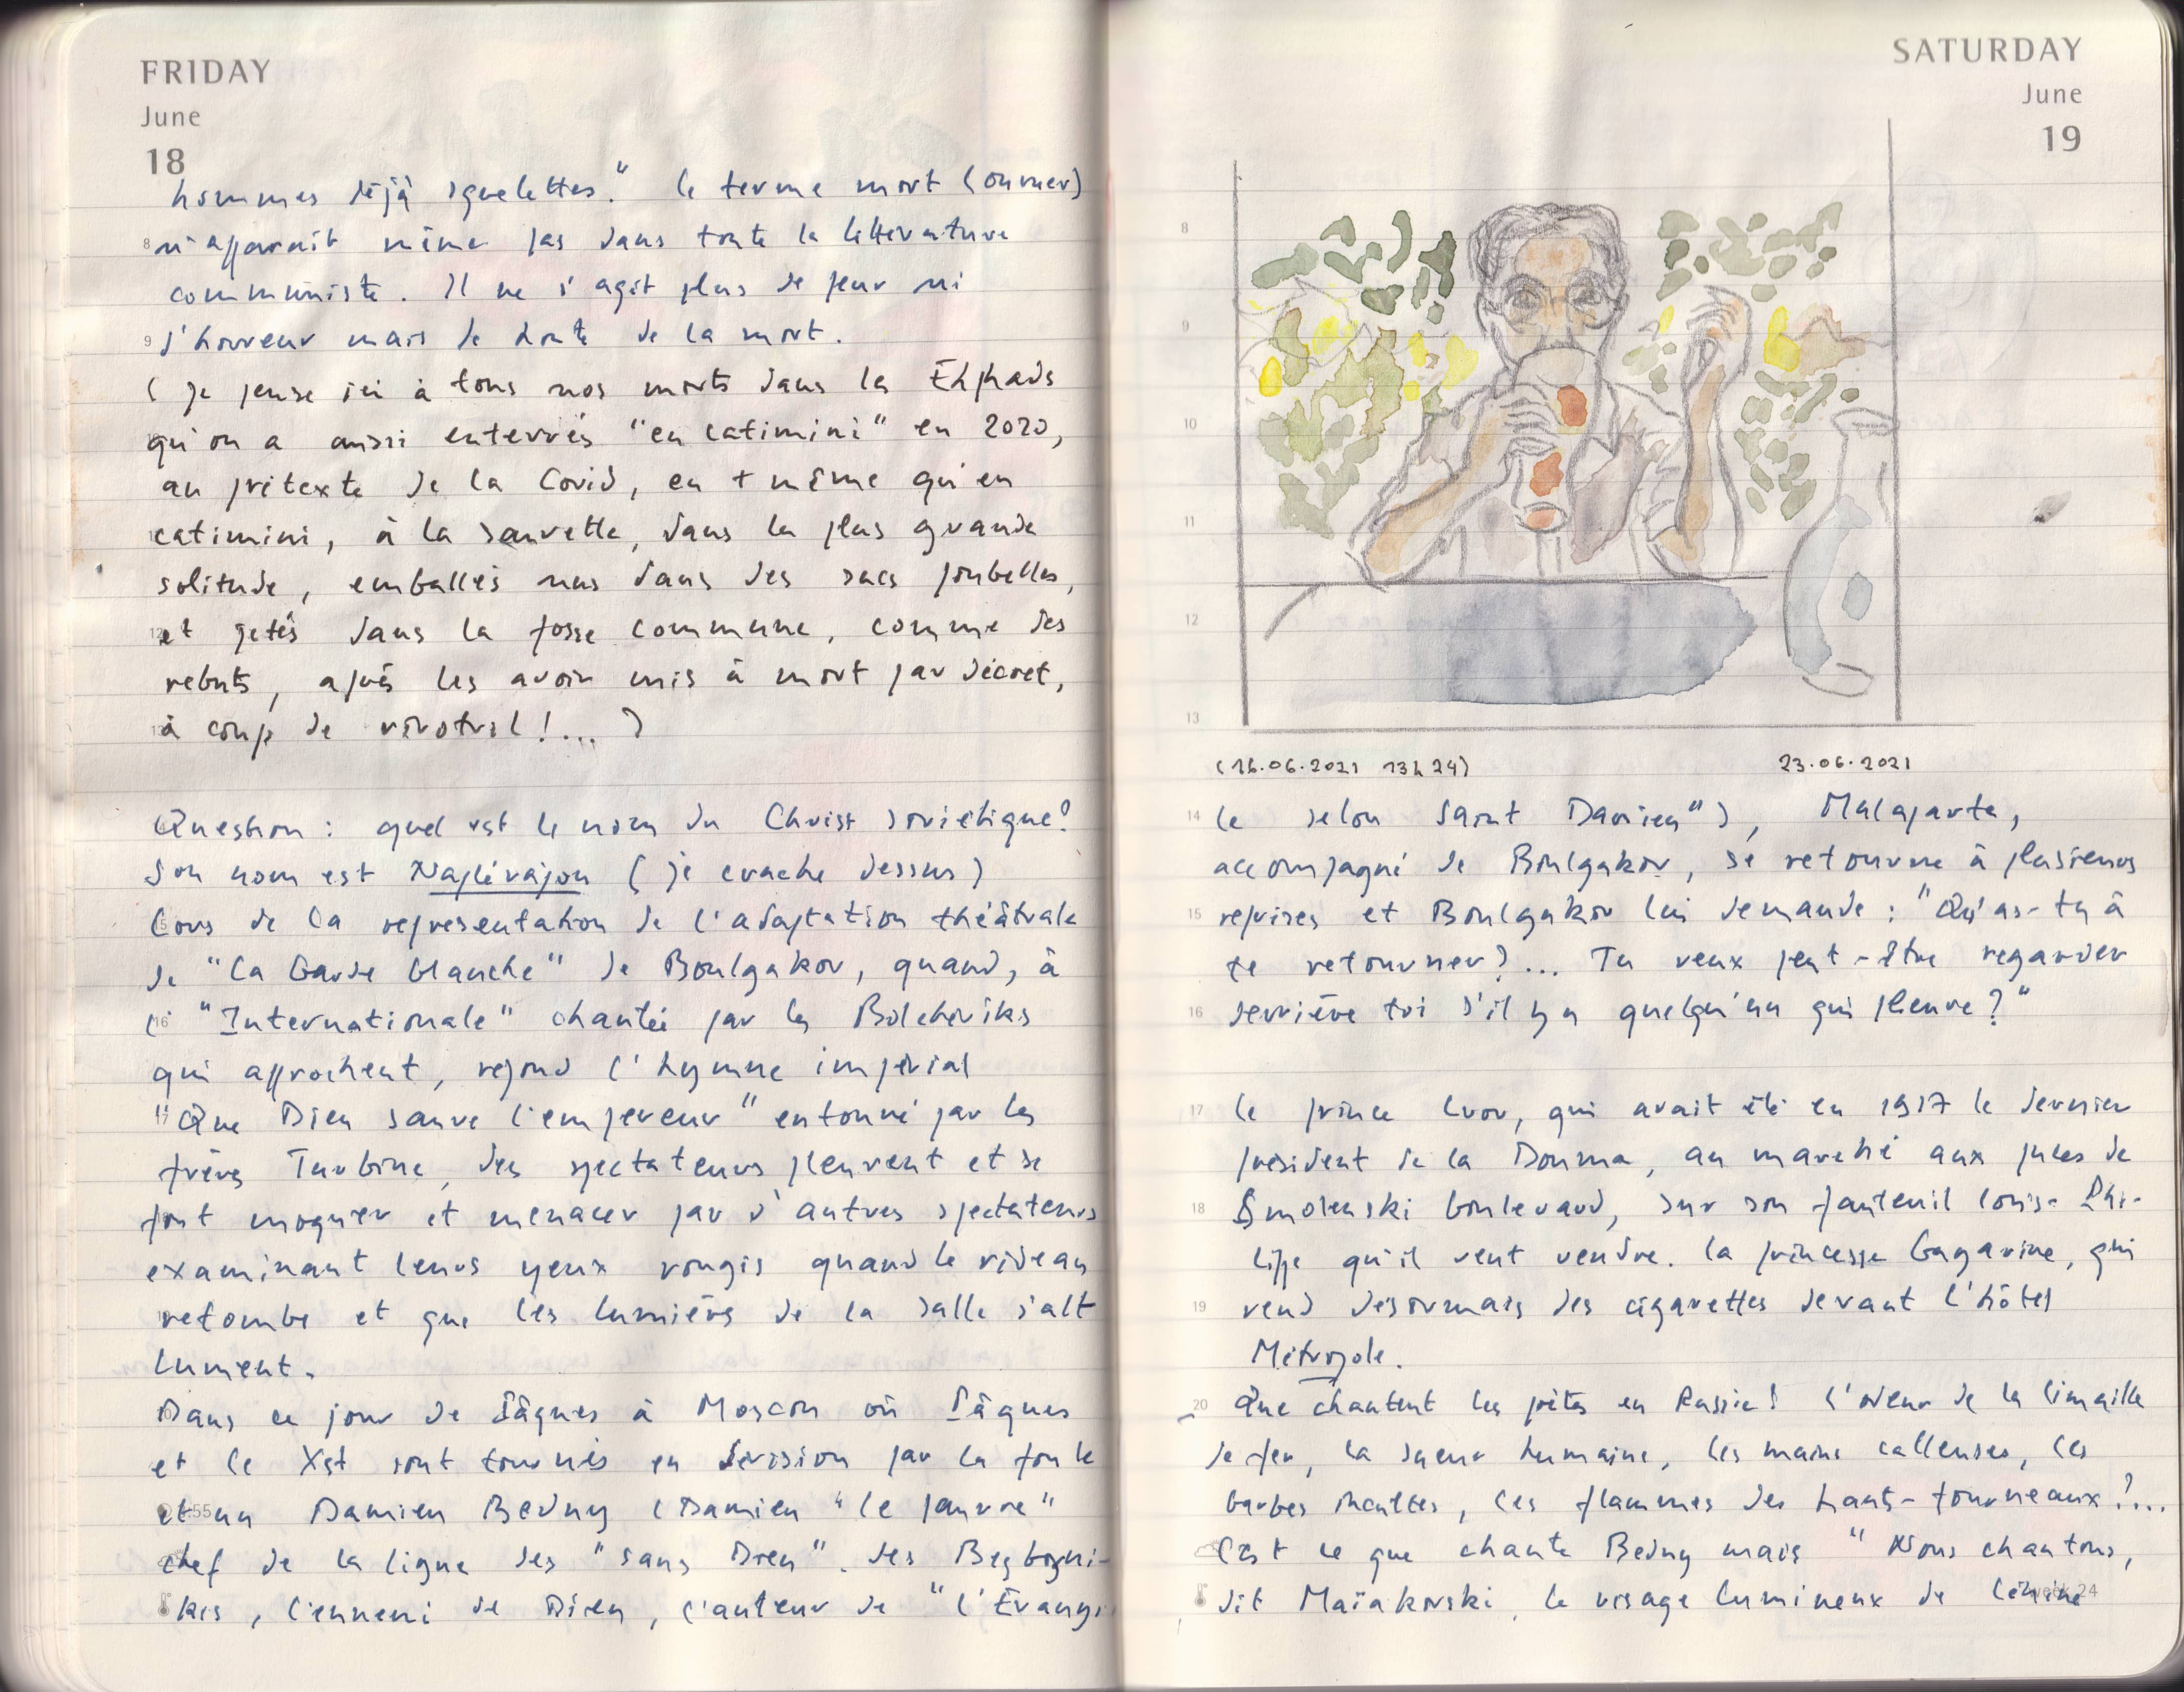 FRIDAY
June
18
hommes déjà squelettes." Le terme mort (oumer)
8 n'apparait même pas dans toute la littérature
communiste. Il ne s'agit plus de peur ni
9 d'horreur mais de honte de la mort.
( je pense ici à tous nos morts dans les Ehpads
qu'on a aussi enterrés "en catimini" en 2020,
au prétexte de la Covid, en + même qu'en
catimini, à la sauvette, dans la plus grande
solitude, emballés nus dans des sacs poubelles,
et jetés dans la fosse commune, comme des
rebuts, après les avoir mis à mort par décret,
à coup de rivotril !... )
Question : quel est le nom du Christ soviétique?
Son nom est Naplévajou ( je crache dessus )
Lors de la représentation de l'adaptation théâtrale
de "La Garde blanche" de Boulgakov, quand, à
l' "Internationale" chantée par les Bolcheviks
qui approchent, répond l'hymne impérial
"Que Dieu sauve l'empereur" entonné par les
frères Turbine, des spectateurs pleurent et se
font moquer et menacer par d'autres spectateurs
examinant leurs yeux rougis quand le rideau
retombe et que les lumières de la salle s'all
lument.
Dans ce jour de Pâques à Moscou où Pâques
et le Xst sont tournés en dérision par la foule
et un Damien Bedny (Damien "le pauvre"
chef de la ligne des "sans Dieu". des Bezbojni-
kis, l'ennemi de Dieu, l'auteur de "l'Évangi
SATURDAY
June
19
8
9
10
11
12
13
(16.06.2021 13h24) 23.06.2021
14 le selon Saint Damien" ), Malaparte,
accompagné de Boulgakov, se retourne à plusieurs
15 reprises et Boulgakov lui demande : "Qu'as-tu à
te retourner ?... Tu veux peut-être regarder
16 derrière toi s'il y a quelqu'un qui pleure ?"
17 Le prince Lvov, qui avait été en 1917 le dernier
président de la Douma, au marché aux puces de
18 Smolenski boulevard, sur son fauteuil Louis-Phi-
lippe qu'il veut vendre. La princesse Gagarine, qui
19 vend désormais des cigarettes devant l'hôtel
Métropole.
20 Que chantent les poètes en Russie ! L'odeur de la limaille
de fer, la sueur humaine, les mains calleuses, les
barbes incultes, les flammes des hauts-fourneaux ?...
C'est ce que chante Bedny mais " Nous chantons,
dit Maïakovski, le visage lumineux de Lénine
week 24